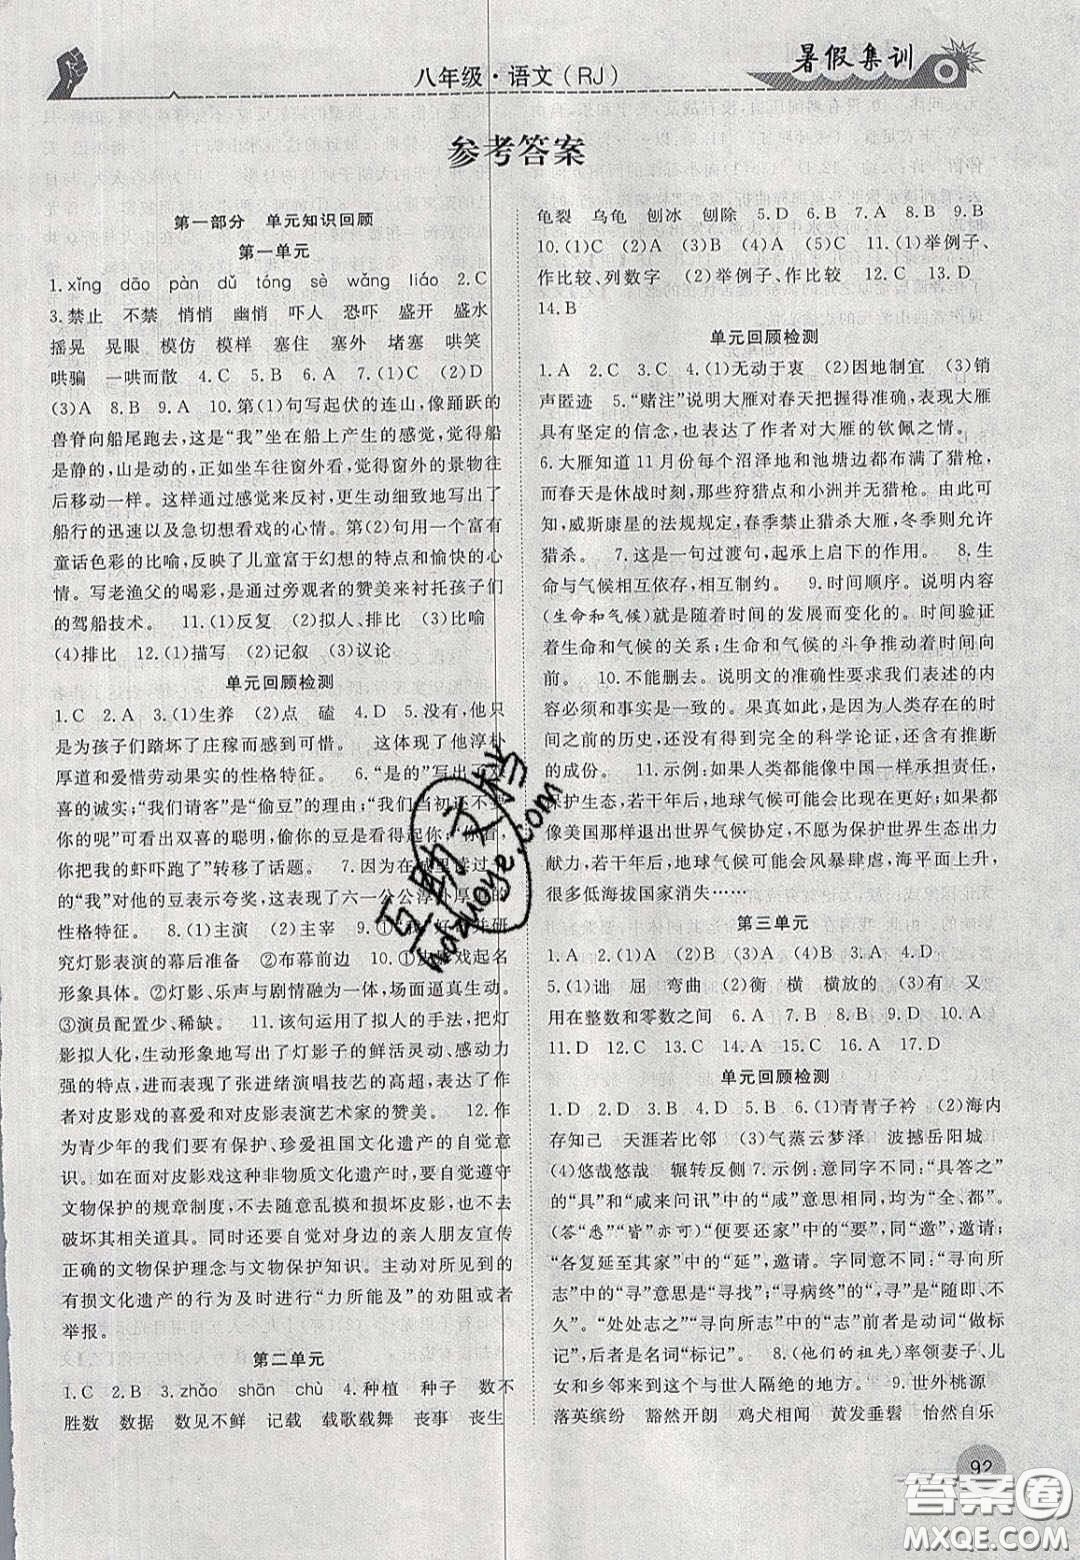 八年级·语文（RJ）
暑假集训
参考答案
第一部分　单元知识回顾
第一单元
1.xǐng dāo pàn dǔ tóng sè wǎng liáo 2.C
3.禁止　不禁　悄悄　幽悄　吓人　恐吓　盛开　盛水
摇晃　晃眼　模仿　模样　塞住　塞外　堵塞　哄笑
哄骗　一哄而散　4.C　5.B　6.A　7.(1)C　(2)D
(3)A　8.B　9.A　10.第(1)句写起伏的连山,像踊跃的
兽脊向船尾跑去,这是“我”坐在船上产生的感觉,船
是静的,山是动的。正如坐车往窗外看,窗外的景物往
后移动一样。这样通过感觉来反衬,更生动细致地写出了
船行的迅速以及急切想看戏的心情。第(2)句用一个富有
童话色彩的比喻,反映了儿童富于幻想的特点和愉快的心
情。写老渔父的喝彩,是借旁观者的赞美来衬托孩子们
的驾船技术。　11.(1)反复　(2)拟人、排比　(3)比喻
(4)排比　12.(1)描写　(2)记叙　(3)议论
单元回顾检测
1.C　2.A　3.(1)生养　(2)点　磕　4.D　5.没有,他只
是为孩子们踏坏了庄稼而感到可惜。　这体现了他淳朴
厚道和爱惜劳动果实的性格特征。　6.“是的”写出了双
喜的诚实;“我们请客”是“偷豆”的理由;“我们当初还不要
你的呢”可看出双喜的聪明,偷你的豆是看得起你;“你看,
你把我的虾吓跑了”转移了话题。　7.因为在城里读过书
的“我”对他的豆表示夸奖,这表现了六一公公淳朴厚厚的
性格特征。　8.(1)主演　(2)主宰　9.①“我”好奇并研
究灯影表演的幕后准备　②布幕前边　10.①皮影戏起名
形象具体。②灯影、乐声与剧情融为一体,场面逼真生动。
③演员配置少、稀缺。　11.该句运用了拟人的手法,把灯
影拟人化,生动形象地写出了灯影子的鲜活灵动、感动力
强的特点,进而表现了张进绪演唱技艺的高超,表达了作
者对皮影戏的喜爱和对皮影表演艺术家的赞美。　12.作
为青少年的我们要有保护、珍爱祖国文化遗产的自觉意
识。如在面对皮影戏这种非物质文化遗产时,要自觉遵守
文物保护的规章制度,不去随意乱摸和损坏皮影,不去
破坏其相关道具。同时还要自觉对身边的亲人朋友宣传
正确的文物保护理念与文物保护知识。主动对所见到的
有损文化遗产的行为及时进行“力所能及”的劝阻或者
举报。
第二单元
1.C　2.B　3.zhǎo　shān　chù　4.种植　种子　数不
胜数　数据　数见不鲜　记载　载歌载舞　丧事　丧生
龟裂　乌龟　刨冰　刨除　5.D　6.B　7.A　8.B　9.B
10.(1)C　(2)D　(3)A　(4)B　(5)C　11.(1)举例子、
作比较、列数字　(2)举例子、作比较　12.C　13.D
14.B
单元回顾检测
1.A　2.C　3.C　4.(1)无动于衷　(2)因地制宜　(3)销
声匿迹　5.“赌注”说明大雁对春天把握得准,表现大雁
具有坚定的信念,也表达了作者对大雁的钦佩之情。
6.大雁知道11月份每个沼泽地和池塘边都布满了猎枪,
而春天是休战时刻,那些狩猎点和小洲并无猎枪。由此可
知,威斯康星的法规规定,春季禁止猎杀大雁,冬季则允许
猎杀。　7.这是一句过渡句,起承上启下的作用。　8.生
命与气候相互依存,相互制约。　9.时间顺序。说明内容
(生命和气候)就是随着时间的发展而变化的。时间验证
着生命和气候的关系;生命和气候的斗争推动着时间向
前。　10.不能删去。说明文的准确性要求我们表述的内
容必须和事实是一致的。果真如此,是因为人类存在的时
间之前的历史,还没有得到完全的科学论证,还含有推断
的成份。　11.示例:如果人类都能像中国一样承担责任,
保护生态,若干年后,地球气候可能会更好。如果人类都
像美国那样退出世界气候协定,不愿为保护世界生态出力
献力,若干年后,地球气候可能会风暴肆虐,海平面上升,
很多低海拔国家消失……
第三单元
1.A　2.(1)A　(2)B　(3)A　3.A　4.D
5.(1)诎　屈　弯曲　(2)衡　横　横放的　(3)有　又
用在整数和零数之间　6.A　7.B　8.B　9.D　10.A
11.D　12.A　13.B　14.A　15.C　16.A　17.D
单元回顾检测
1.D　2.D　3.D　4.B　5.B　6.(1)青青子衿　(2)海内
存知己　天涯若比邻　(3)气蒸云梦泽　波撼岳阳城
(4)悠哉悠哉　辗转反侧　7.示例:意同字不同:“具答之”
的“具”和“咸来问讯”中的“咸”意思相同,均为“全、都”。
(答“悉”“皆”亦可)“便要还家”中的“要”,同“邀”,邀请;
“各复延至其家”中的“延”,邀请。字同意不同:“寻向所
志”中的“寻”意思是“寻找”;“寻病终”的“寻”是“随即、不
久”。“处处志之”“寻向所志”中的“志”前者是动词“做标
记”,后者是名词“标记”。　8.(他们的祖先)率领妻子、儿
女和乡邻来到这个与世人隔绝的地方。　9.世外桃源
落英缤纷　豁然开朗　鸡犬相闻　黄发垂髫　怡然自乐
92
互助文档
huzuoye.com
答案圈
MXQE.COM